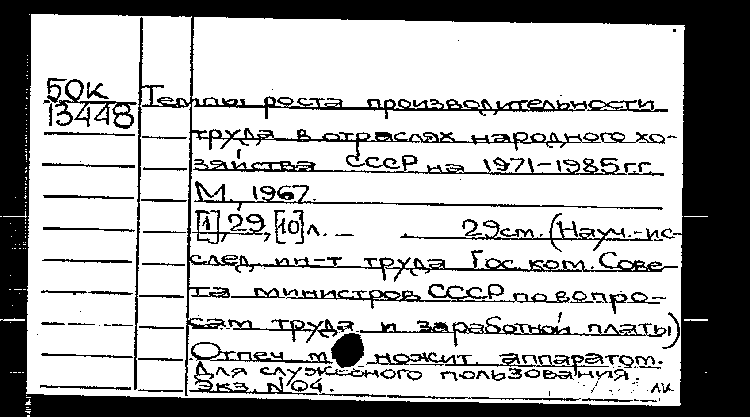 50к
13448
Темпы роста производительности
труда в отраслях народного хо-
зяйства СССР на 1971-1985 гг.
М., 1967.
[1], 29, [10] л. — 29см. (Науч.-ис-
след. ин-т труда Гос. ком. Сове-
та министров СССР по вопро-
сам труда и заработной платы)
Отпеч. множит. аппаратом.
Для служебного пользования.
Экз. №04.